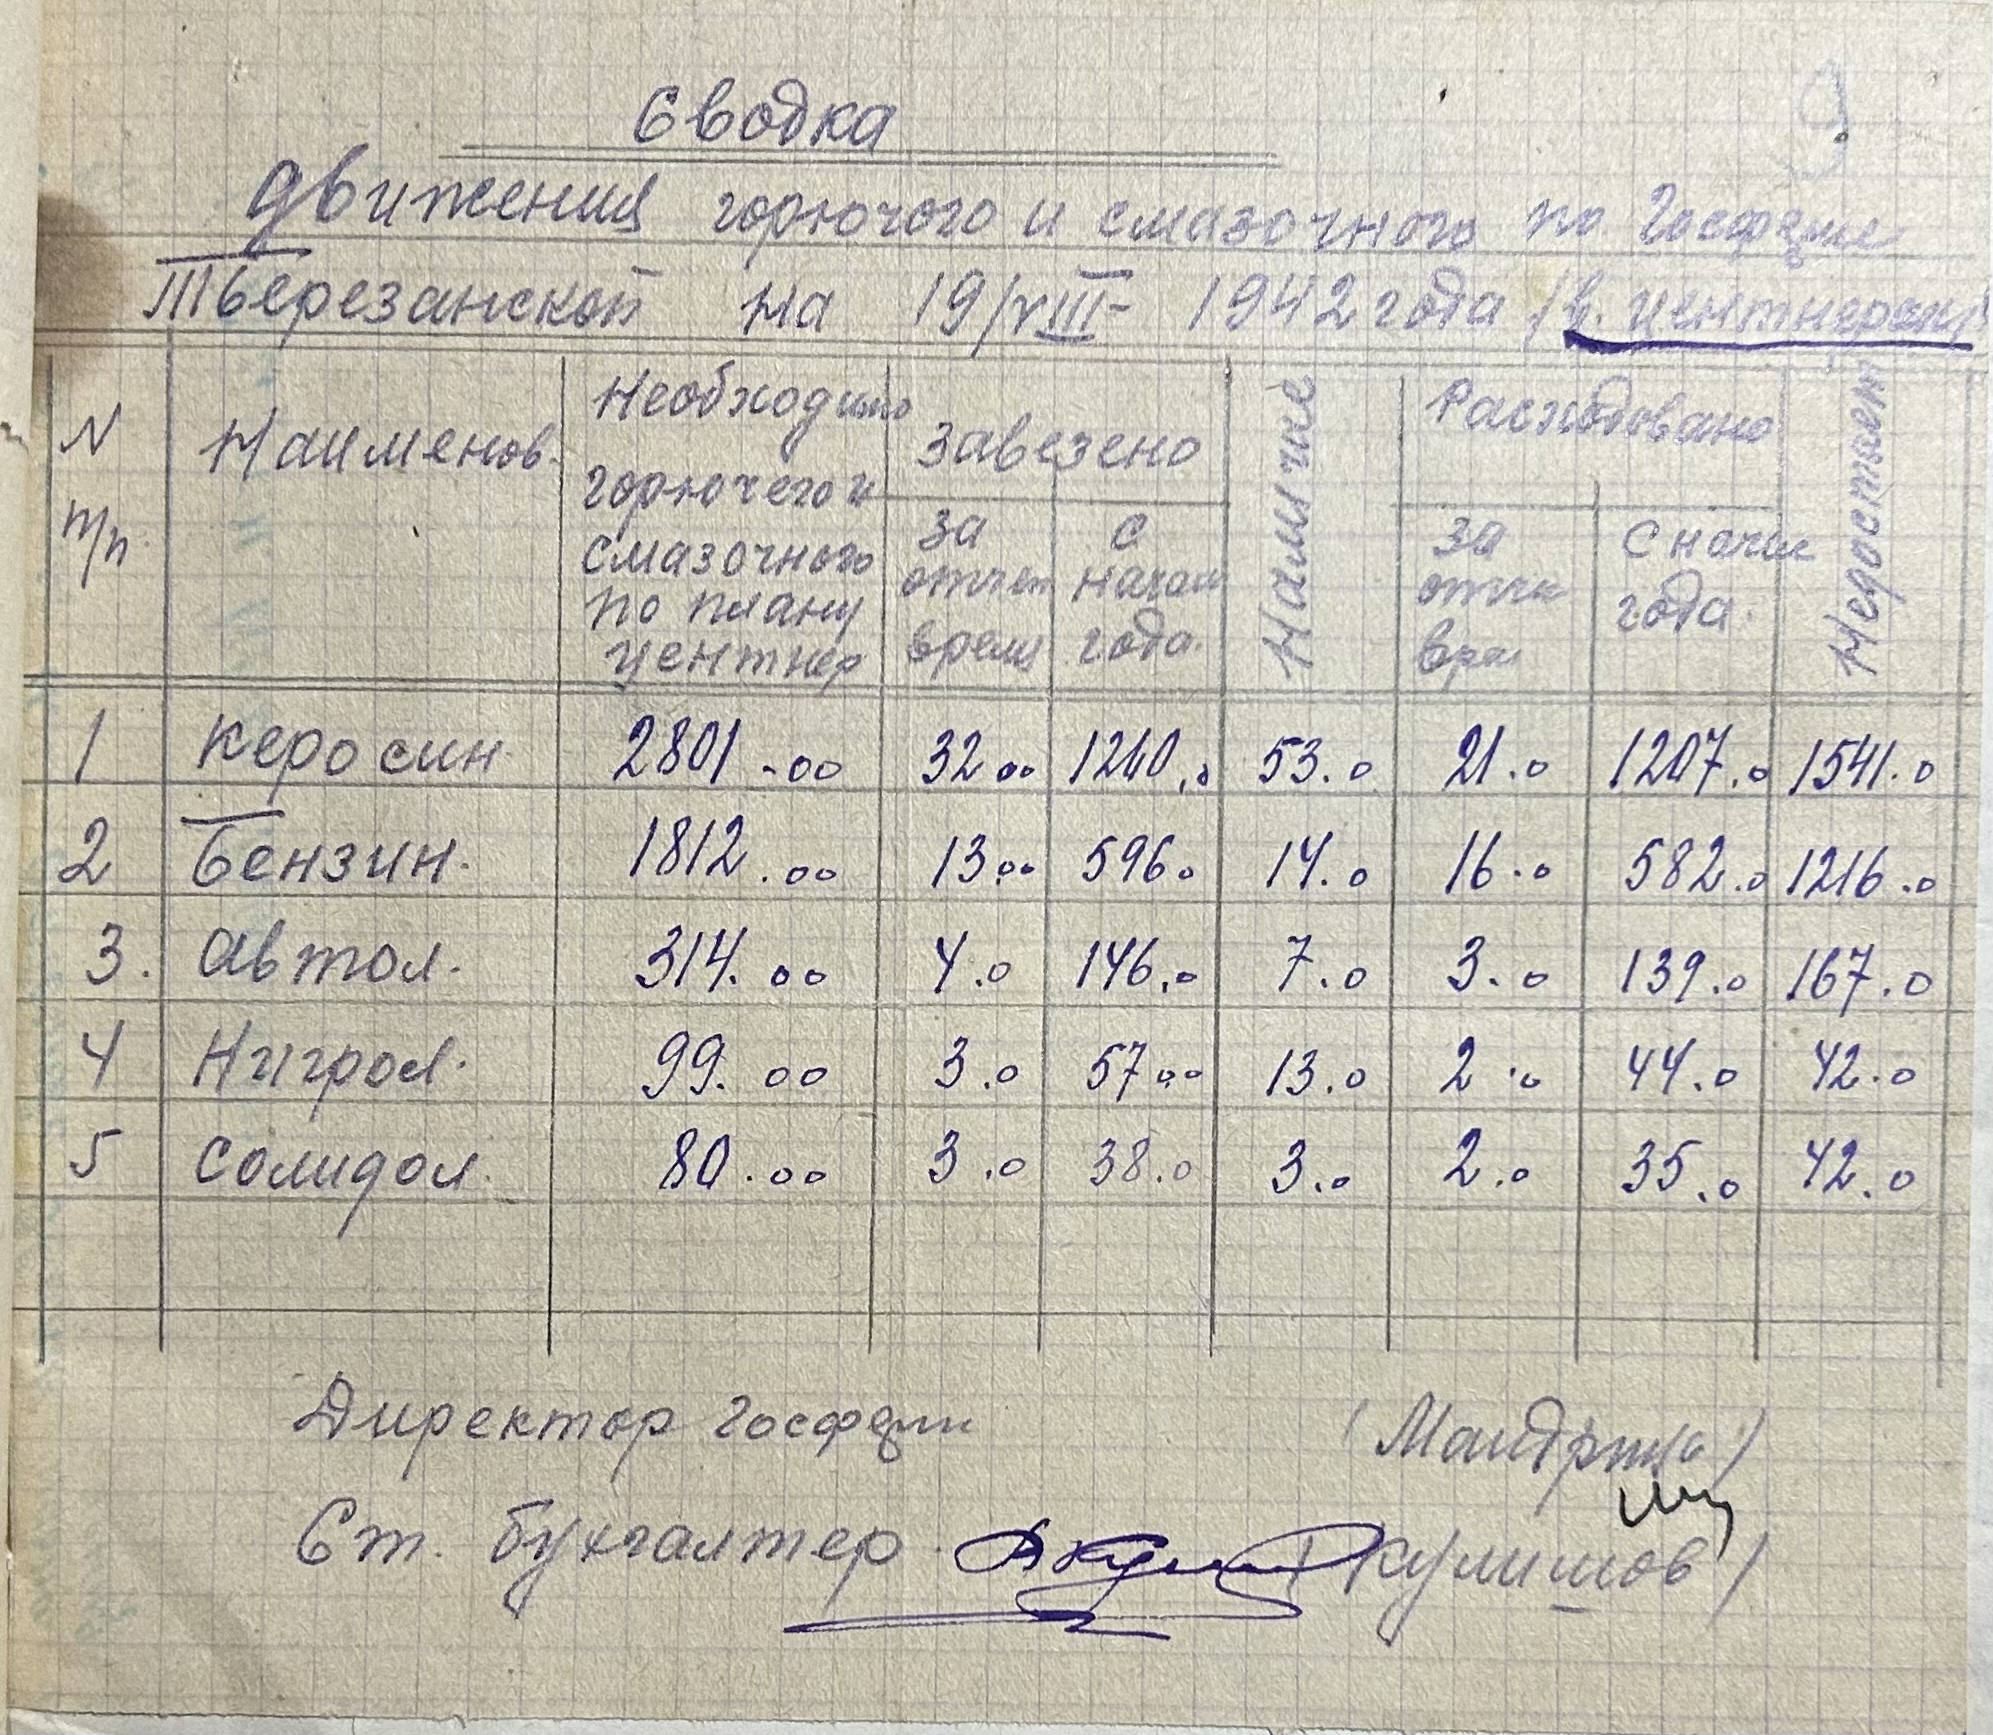 9
Сводка
движения горючого и смазочного по Госферме
Тверезанской на 19/VIII- 1942 года /в. центнерах/
N п/п. Наименов. Необходимо горючего и смазочного по плану центнер завезено Наличие Расходовано Недостает
за отчет время с начал года. за отчн врем с начал года.
1 керосин. 2801.-00 32.00 1260.0 53.0 21.0 1207.0 1541.0
2 Бензин. 1812.00 13.00 596.0 14.0 16.0 582.0 1216.0
3. автол. 314.00 4.0 146.0 7.0 3.0 139.0 167.0
4 Нигрол. 99.00 3.0 57.00 13.0 2.0 44.0 42.0
5 солидол. 80.00 3.0 38.0 3.0 2.0 35.0 42.0
Директор госферм (Мандрыка)
Ст. бухгалтер (Кулишов)